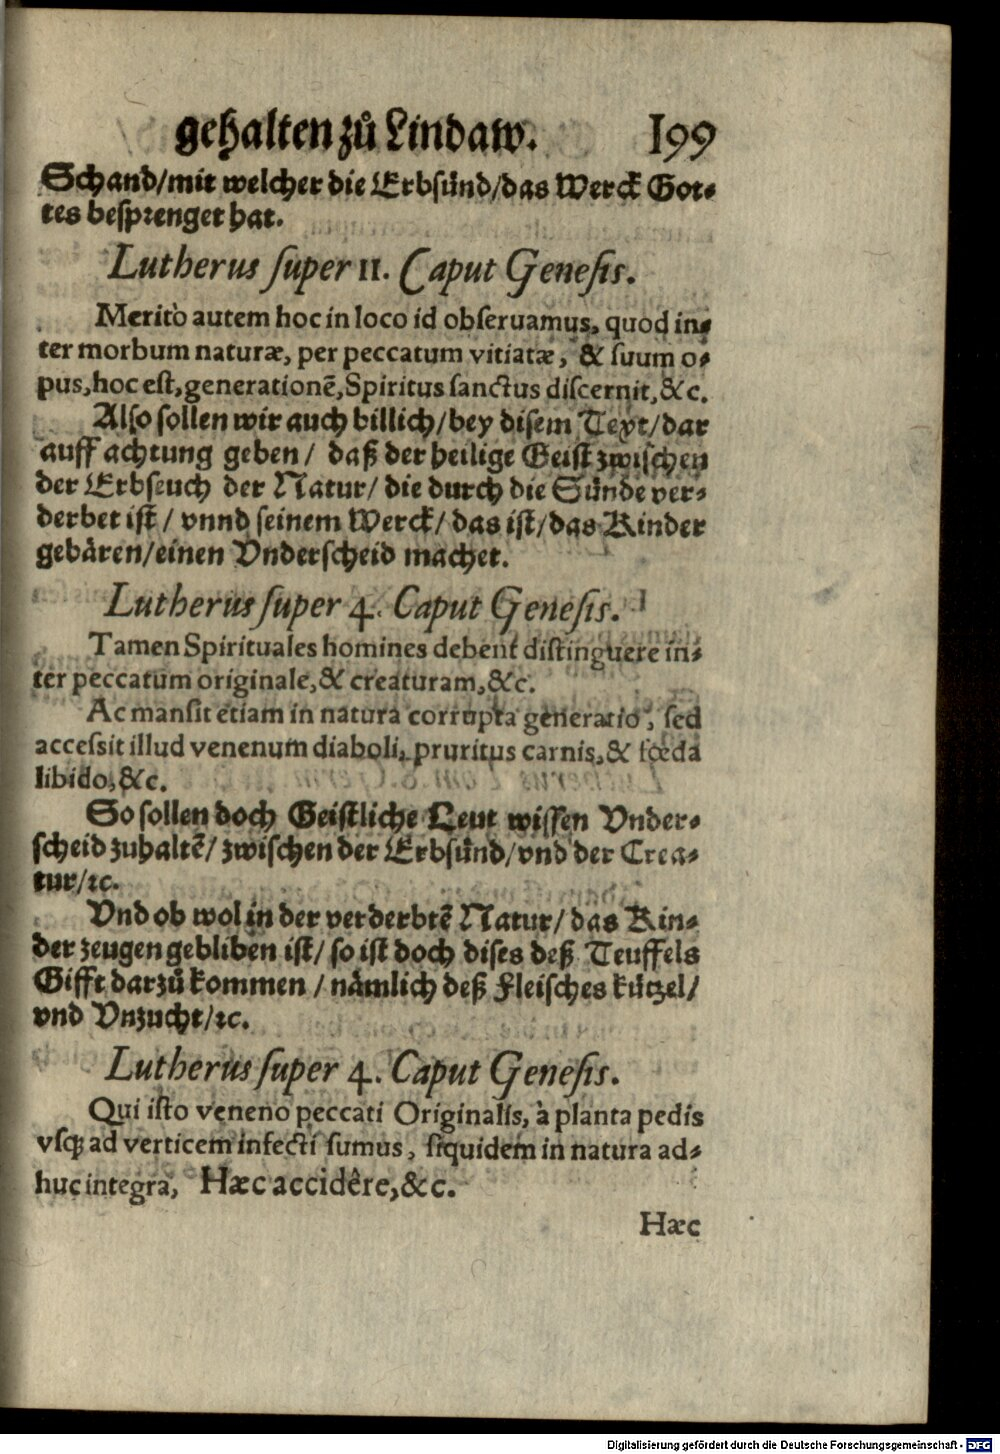 gehalten zů Lindaw. 199
Schand/mit welcher die Erbsünd/das Werck Got⸗
tes besprenget hat.
Lutherus super 11. Caput Genesis.
Meritò autem hoc in loco id obseruamus, quod in⸗
ter morbum naturæ, per peccatum vitiatæ, & suum o⸗
pus, hoc est, generationē, Spiritus sanctus discernit, &c.
Also sollen wir auch billich/bey disem Text/dar
auff achtung geben/ daß der heilige Geist zwischen
der Erbseuch der Natur/ die durch die Sünde ver⸗
derbet ist/ vnnd seinem Werck/ das ist/das Kinder
gebären/einen Vnderscheid machet.
Lutherus super 4. Caput Genesis.
Tamen Spirituales homines debent distinguere in⸗
ter peccatum originale, & creaturam, &c.
Ac mansit etiam in natura corrupta generatio, sed
accessit illud venenum diaboli, pruritus carnis, & fœda
libido, &c.
So sollen doch Geistliche Leut wissen Vnder⸗
scheid zuhaltē/ zwischen der Erbsünd/vnd der Crea⸗
tur/ꝛc.
Vnd ob wol in der verderbtē Natur/ das Kin⸗
der zeugen gebliben ist/ so ist doch dises deß Teuffels
Gifft darzů kommen / nämlich deß Fleisches kützel/
vnd Vnzucht/ꝛc.
Lutherus super 4. Caput Genesis.
Qui isto veneno peccati Originalis, à planta pedis
vsq; ad verticem infecti sumus, siquidem in natura ad⸗
huc integra, Hæc accidêre, &c.
Hæc
Digitalisierung gefördert durch die Deutsche Forschungsgemeinschaft - DFG